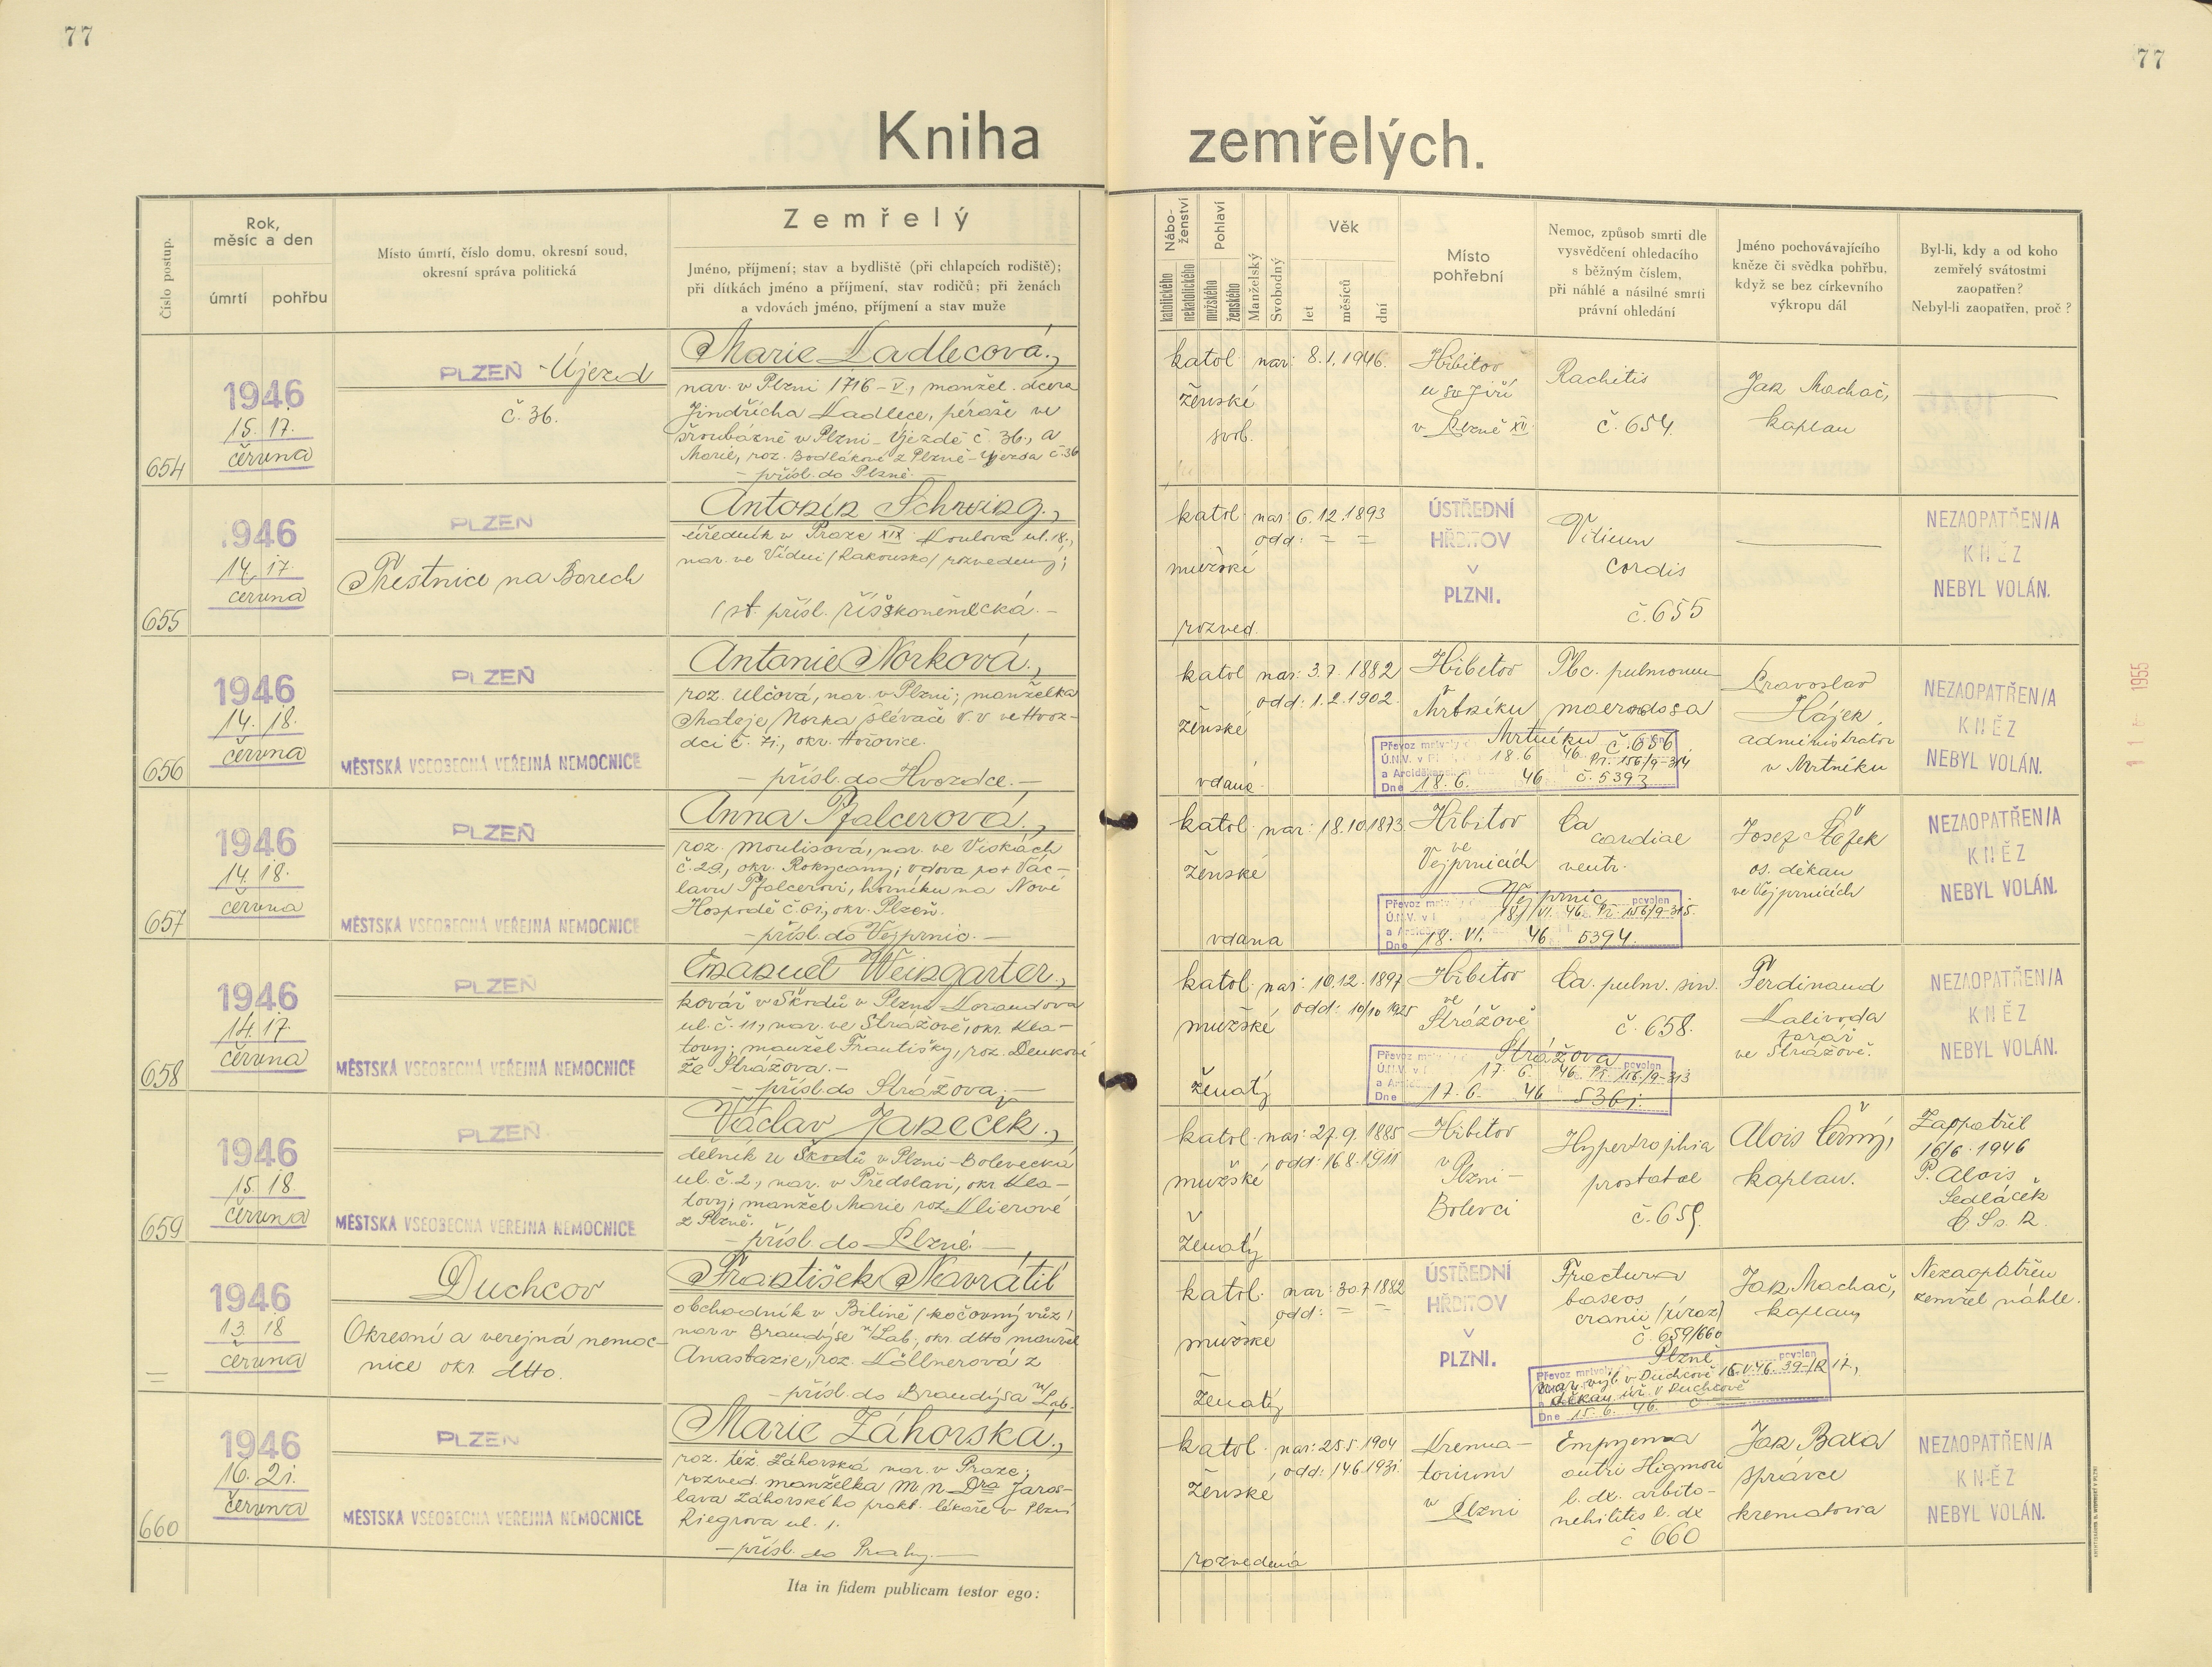 77
77
Kniha zemřelých.
Číslo postup.
Rok, měsíc a den
úmrtí
pohřbu
Místo úmrtí, číslo domu, okresní soud,
okresní správa politická
Zemřelý
Jméno, příjmení; stav a bydliště (při chlapcích rodiště);
při dítkách jméno a příjmení, stav rodičů; při ženách
a vdovách jméno, příjmení a stav muže
Nábo-
ženství
katolického
nekatolického
Pohlaví
mužského
ženského
Manželský
Svobodný
Věk
let
měsíců
dní
Místo
pohřební
Nemoc, způsob smrti dle
vysvědčení ohledacího
s běžným číslem,
při náhlé a násilné smrti
právní ohledání
Jméno pochovávajícího
kněze či svědka pohřbu,
když se bez církevního
výkropu dál
Byl-li, kdy a od koho
zemřelý svátostmi
zaopatřen?
Nebyl-li zaopatřen, proč?
654
1946
15. 17.
června
PLZEŇ - Újezd
č. 36.
Marie Kadlecová,
nar. v Plzni 1716 - V, manžel. dcera
Jindřicha Kadlece, péraře ve
šroubárně v Plzni - Újezdě č. 36., a
Marie, roz. Bodlákové z Plzně - Újezda č. 36
- přísl. do Plzně. -
katol.
ženské
svob.
nar: 8.1.1946.
Hřbitov
u sv Jiří
v Plzně XV.
Rachitis
č. 654.
Jan Machač,
kaplan
655
1946
14. 17.
června
PLZEŇ
Věstnice na Borech
Antonín Schwing.,
úředník v Praze XIX Koulova ul. 18.,
nar. ve Vídni (Rakousko) rozvedený;
(st. přísl. říšskoněmecká. -
katol.
mužské
rozved.
nar: 6.12.1893
odd: = =
ÚSTŘEDNÍ
HŘBITOV
V
PLZNI.
Vitium
cordis
č. 655
NEZAOPATŘEN/A
KNĚZ
NEBYL VOLÁN.
656
1946
14. 18.
června
PLZEŇ
MĚSTSKÁ VŠEOBECNÁ VEŘEJNÁ NEMOCNICE
Antonie Norková,
roz. Ulčová, nar. v Plzni; manželka
Mateje Norka slévače v. v. ve Hvoz-
dci č. 71., okr. Hořovice.
- přísl. do Hvozdce. -
katol
ženské
vdaná
nar: 3.7.1882
odd: 1.2.1902.
Hřbitov
Mrtníku
Tbc. pulmonum
č. 656
Převoz mrtvoly do Mrtníku povolen
18.6. 46 Př. 156/9-314
Dne 18.6. 46 č. 5393
Pravoslav
Hájek,
administrator
v Mrtníku
NEZAOPATŘEN/A
KNĚZ
NEBYL VOLÁN.
1955
657
1946
14. 18.
června
PLZEŇ
MĚSTSKÁ VŠEOBECNÁ VEŘEJNÁ NEMOCNICE
Anna Pfalcerová,
roz. Moulisová, nar. ve Vískách
č. 29., okr. Rokycany; vdova po + Vác-
lavu Pfalcerovi, horníku na Nové
Hospodě č. 61., okr. Plzeň.
- přísl. do Vejprnic. -
katol.
ženské
vdana
nar: 18.10.1873.
Hřbitov
ve
Vejprnicích
Ca
cardiae
ventr.
Převoz mrtvoly Vejprnic povolen
18/VI. 46 Př. 156/9-315.
Dne 18. VI. 46 5394.
Josef Šlajek
os. děkan
ve Vejprnicích
NEZAOPATŘEN/A
KNĚZ
NEBYL VOLÁN.
658
1946
14. 17.
června
PLZEŇ
MĚSTSKÁ VŠEOBECNÁ VEŘEJNÁ NEMOCNICE
Emanuel Weingarter,
kovář v Škodů v Plzni Korandova
ul. č. 11., nar. ve Strážově, okr. Kla-
tovy; manžel Františky, roz. Denkové
ze Strážova. -
- přísl. do Strážova. -
katol.
mužské
ženatý
nar: 10.12.1897
odd: 10/10 1925
Hřbitov
ve
Strážově
Ca. pulm. sin.
č. 658.
Převoz mrtvoly Strážova povolen
17. 6. 46 Př. 156/9-313
Dne 17.6. 46 5361.
Ferdinand
Kalivoda
farář
ve Strážově.
NEZAOPATŘEN/A
KNĚZ
NEBYL VOLÁN.
659
1946
15. 18.
června
PLZEŇ
MĚSTSKÁ VŠEOBECNÁ VEŘEJNÁ NEMOCNICE
Václav Janeček.,
dělník u Škodů v Plzni - Bolevecká
ul. č. 2., nar. v Předslavi, okr Kla-
tovy; manžel Marie roz. Klierové
z Plzně.
- přísl. do Plzně. -
katol.
mužské
ženatý
nar: 27.9.1885
odd: 16.8.1911
Hřbitov
v
Plzni -
Bolevci
Hypertrophia
prostatae
č. 659.
Alois Černý,
kaplan.
Zaopatřil
16/6. 1946
P. Alois
Sedláček
C Ss. R.
=
1946
13. 18
června
Duchcov
Okresní a veřejná nemoc-
nice okr. dtto.
František Navrátil
obchodník v Bílině (kočovný vůz)
nar. v Brandýse n/Lab., okr. dtto manžel
Anastazie, roz. Köllnerová z
- přísl. do Brandýsa n/Lab.
katol.
mužské
ženatý
nar: 30.7.1882
odd: = =
ÚSTŘEDNÍ
HŘBITOV
V
PLZNI.
Fractura
baseos
cranii (úraz)
č. 659/660
Převoz mrtvoly Plzně povolen
nar. výb. v Duchcově 15.V.46. 39-/R 17.,
děkan. úř. v Duchcově
Dne 15. 6. 46. č
Jan Machač,
kaplan,
Nezaopatřen
zemřel náhle.
660
1946
16. 21.
června
PLZEŇ
MĚSTSKÁ VŠEOBECNÁ VEŘEJNÁ NEMOCNICE
Marie Záhorská,
roz. též. Záhorská nar. v Praze;
rozved. manželka M n Dra Jaros-
lava Záhorského prakt. lékaře v Plzni
Riegrova ul. 1.
- přísl. do Prahy. -
katol.
ženské
rozvedená
nar: 25.5.1904
odd: 14.6.1931.
Krema-
torium
v
Plzni
Empyema
antri Higmori
l. dx. arbito-
nehilitis l. dx
č 660
Jan Baxa
správce
krematoria
NEZAOPATŘEN/A
KNĚZ
NEBYL VOLÁN.
Ita in fidem publicam testor ego: